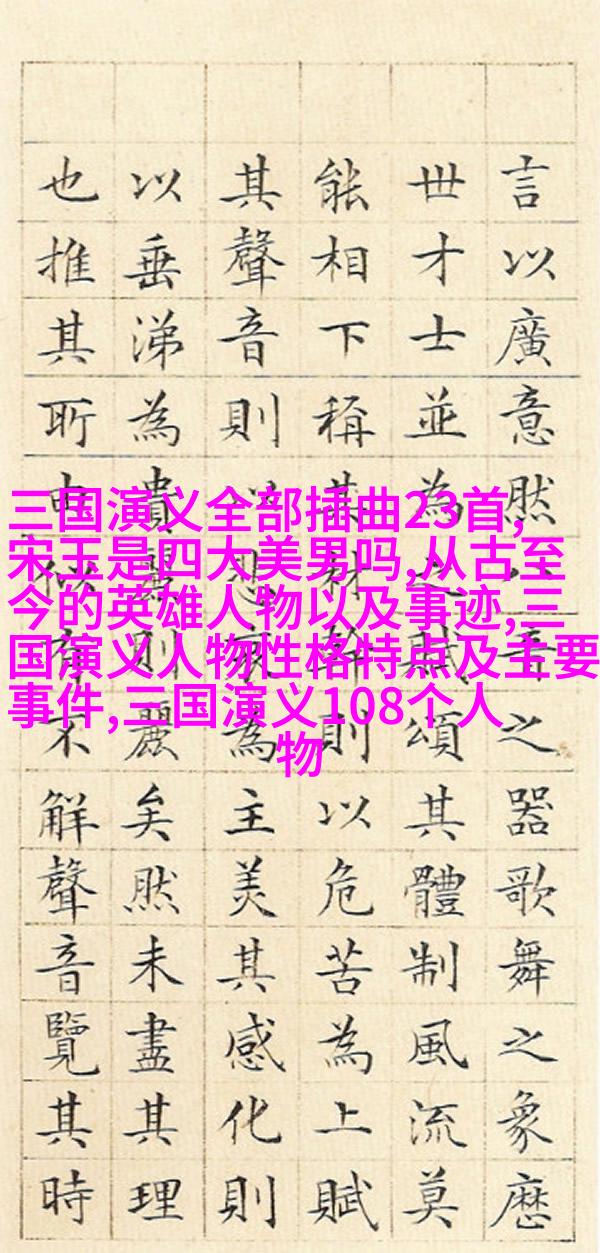 言以廣意然八音之器歌舞之象歷
世才士並為之賦頌其體制風流莫
能相下稱其材幹則以危苦為上賦
其聲音則以悲哀為主美其感化則
以垂涕為貴麗則麗矣然未盡其理
也推其所由似有不解聲音覽其時
三国演义全部插曲23首,
宋玉是四大美男吗,从古至
今的英雄人物以及事迹,三
国演义人物性格特点及主要
事件,三国演义108个人
物